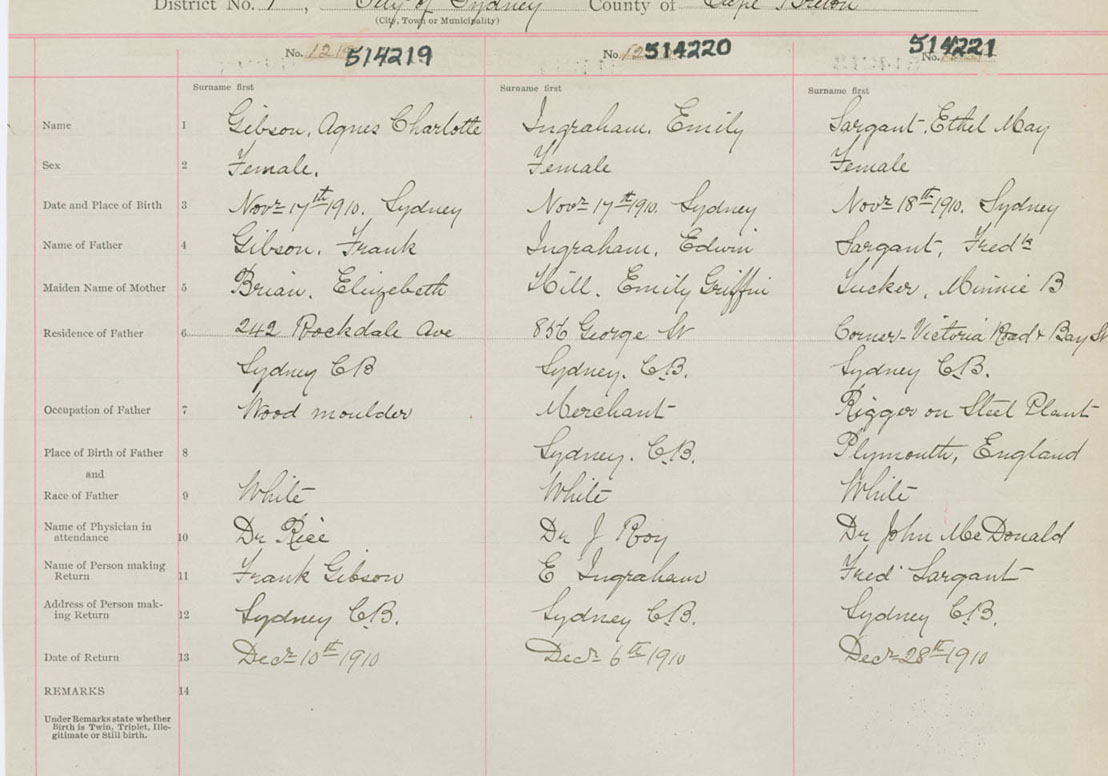 District No. 1, City of Sydney County of Cape Breton
(City, Town or Municipality)
No. 514219 No. 514220 514221 No.
Surname first Surname first Surname first
Name 1 Gibson, Agnes Charlotte Ingraham, Emily Sargant, Ethel May
Sex 2 Female. Female Female
Date and Place of Birth 3 Novr 17th 1910. Sydney Novr 17th 1910. Sydney Novr 18th 1910. Sydney
Name of Father 4 Gibson, Frank Ingraham, Edwin Sargant, Fredk
Maiden Name of Mother 5 Brian, Elizebeth Hill, Emily Griffin Tucker, Minnie B
Residence of Father 6 242 Rockdale Ave 856 George St Corner Victoria Road & Bay St
Sydney CB Sydney. C.B. Sydney C.B.
Occupation of Father 7 Wood moulder Merchant Rigger on Steel Plant
Place of Birth of Father 8 Sydney. C.B. Plymouth, England
and
Race of Father 9 White White White
Name of Physician in
attendance 10 Dr Rice Dr J Roy Dr John McDonald
Name of Person making
Return 11 Frank Gibson E Ingraham Fred Sargant
Address of Person mak-
ing Return 12 Sydney C.B. Sydney C.B. Sydney C.B.
Date of Return 13 Decr 10th 1910 Decr 6th 1910 Decr 28th 1910
REMARKS 14
Under Remarks state whether
Birth is Twin, Triplet, Ille-
gitimate or Still birth.